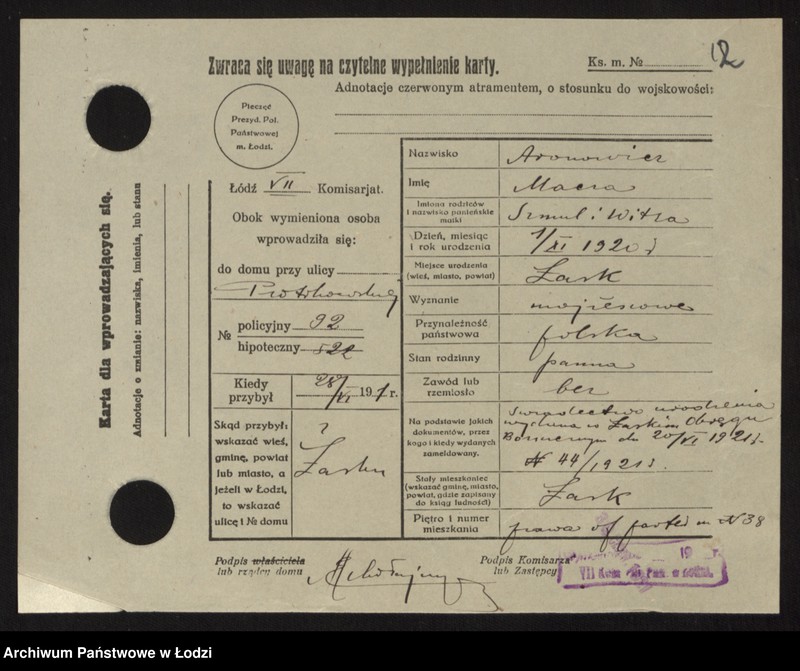 Zwraca się uwagę na czytelne wypełnienie karty.
Ks. m. №
12
Adnotacje czerwonym atramentem, o stosunku do wojskowości:
Pieczęć
Prezyd. Pol.
Państwowej
m. Łodzi.
Karta dla wprowadzających się.
Adnotacje o zmianie: nazwiska, imienia, lub stanu
Łódź VII Komisarjat.
Obok wymieniona osoba
wprowadziła się:
do domu przy ulicy
Piotrkowskiej
№ policyjny 92
hipoteczny 522
Kiedy przybył 28/VI 1921 r.
Skąd przybył:
wskazać wieś,
gminę, powiat
lub miasto, a
jeżeli w Łodzi,
to wskazać
ulicę i № domu
z
Łasku
Nazwisko Aronowicz
Imię
Imiona rodziców
i nazwisko panieńskie
matki
Szmul i
Dzień, miesiąc
i rok urodzenia
1/XI 1920 r
Miejsce urodzenia
(wieś, miasto, powiat)
Łask
Wyznanie mojżeszowe
Przynależność
państwowa
polska
Stan rodzinny panna
Zawód lub
rzemiosło
bez
Na podstawie jakich
dokumentów, przez
kogo i kiedy wydanych
zameldowany.
Świadectwo urodzenia
wydane w Łaskim Okręgu
dn 20/VI 1921 r.
№ 44/1921 r.
Stały mieszkaniec
(wskazać gminę, miasto,
powiat, gdzie zapisany
do ksiąg ludności)
Łask
Piętro i numer
mieszkania
prawa of parter m № 38
Podpis właściciela
lub rządcy domu
Podpis Komisarza
lub Zastępcy
19 r.
VII Kom. Pol. Pań. w Łodzi.
Archiwum Państwowe w Łodzi